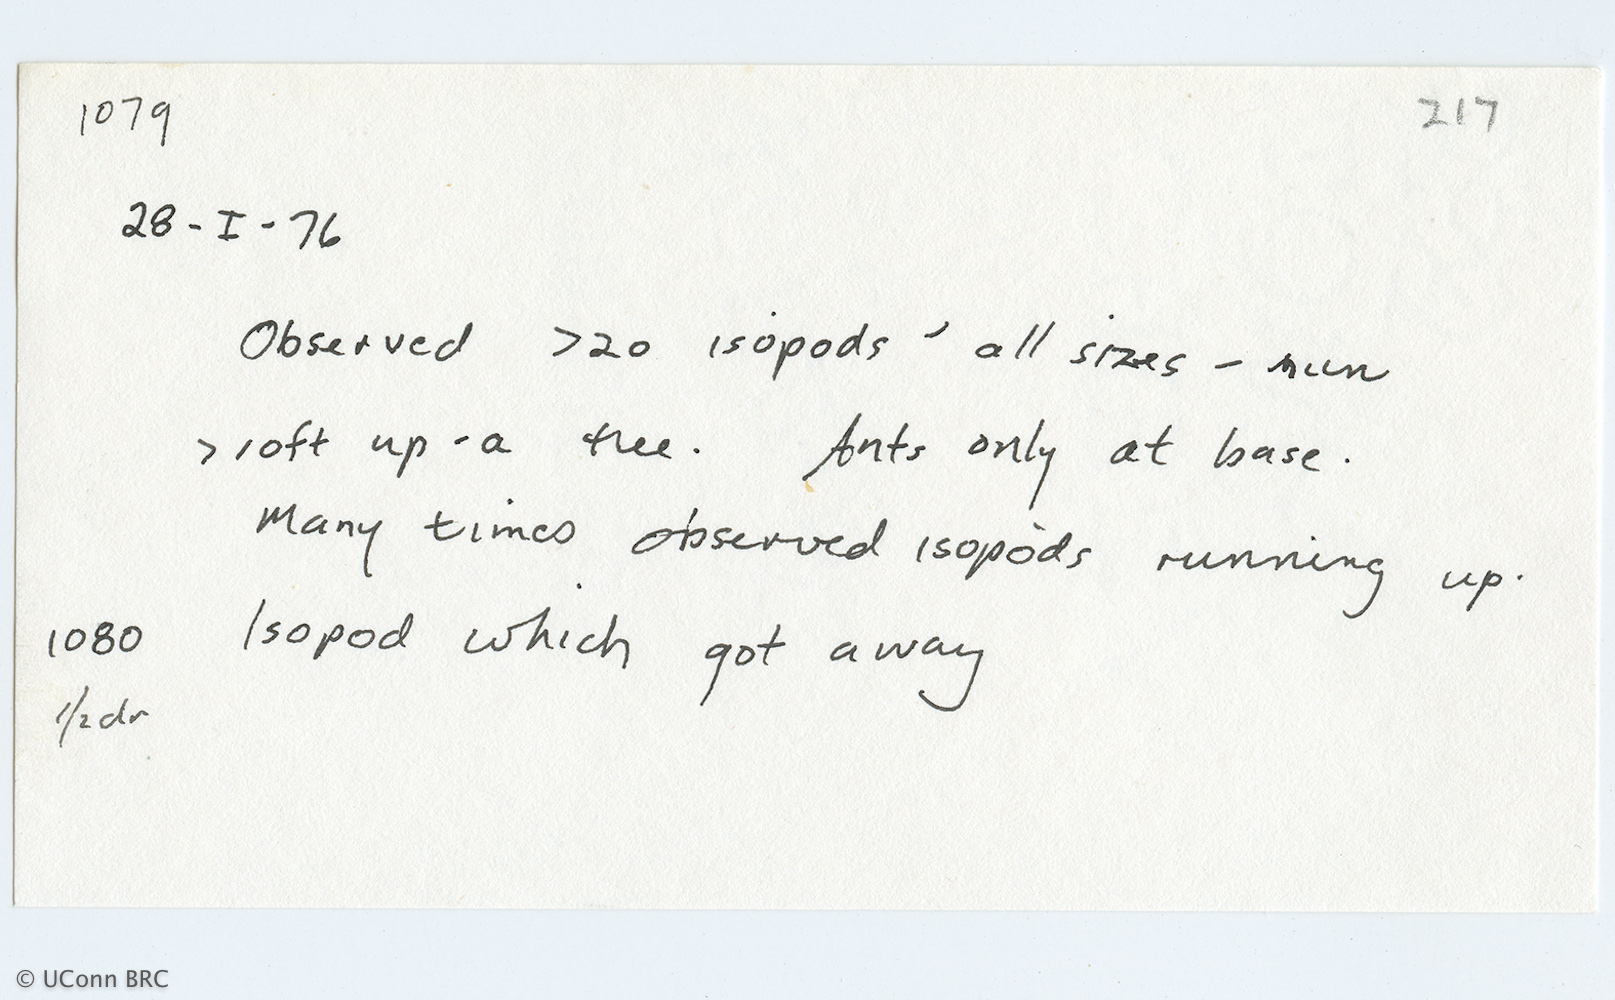 1079 217
28-I-76
Observed >20 isopods - all sizes - run
>10ft up a tree. Ants only at base.
Many times observed isopods running up.
1080 Isopod which got away
1/2 dr
© UConn BRC